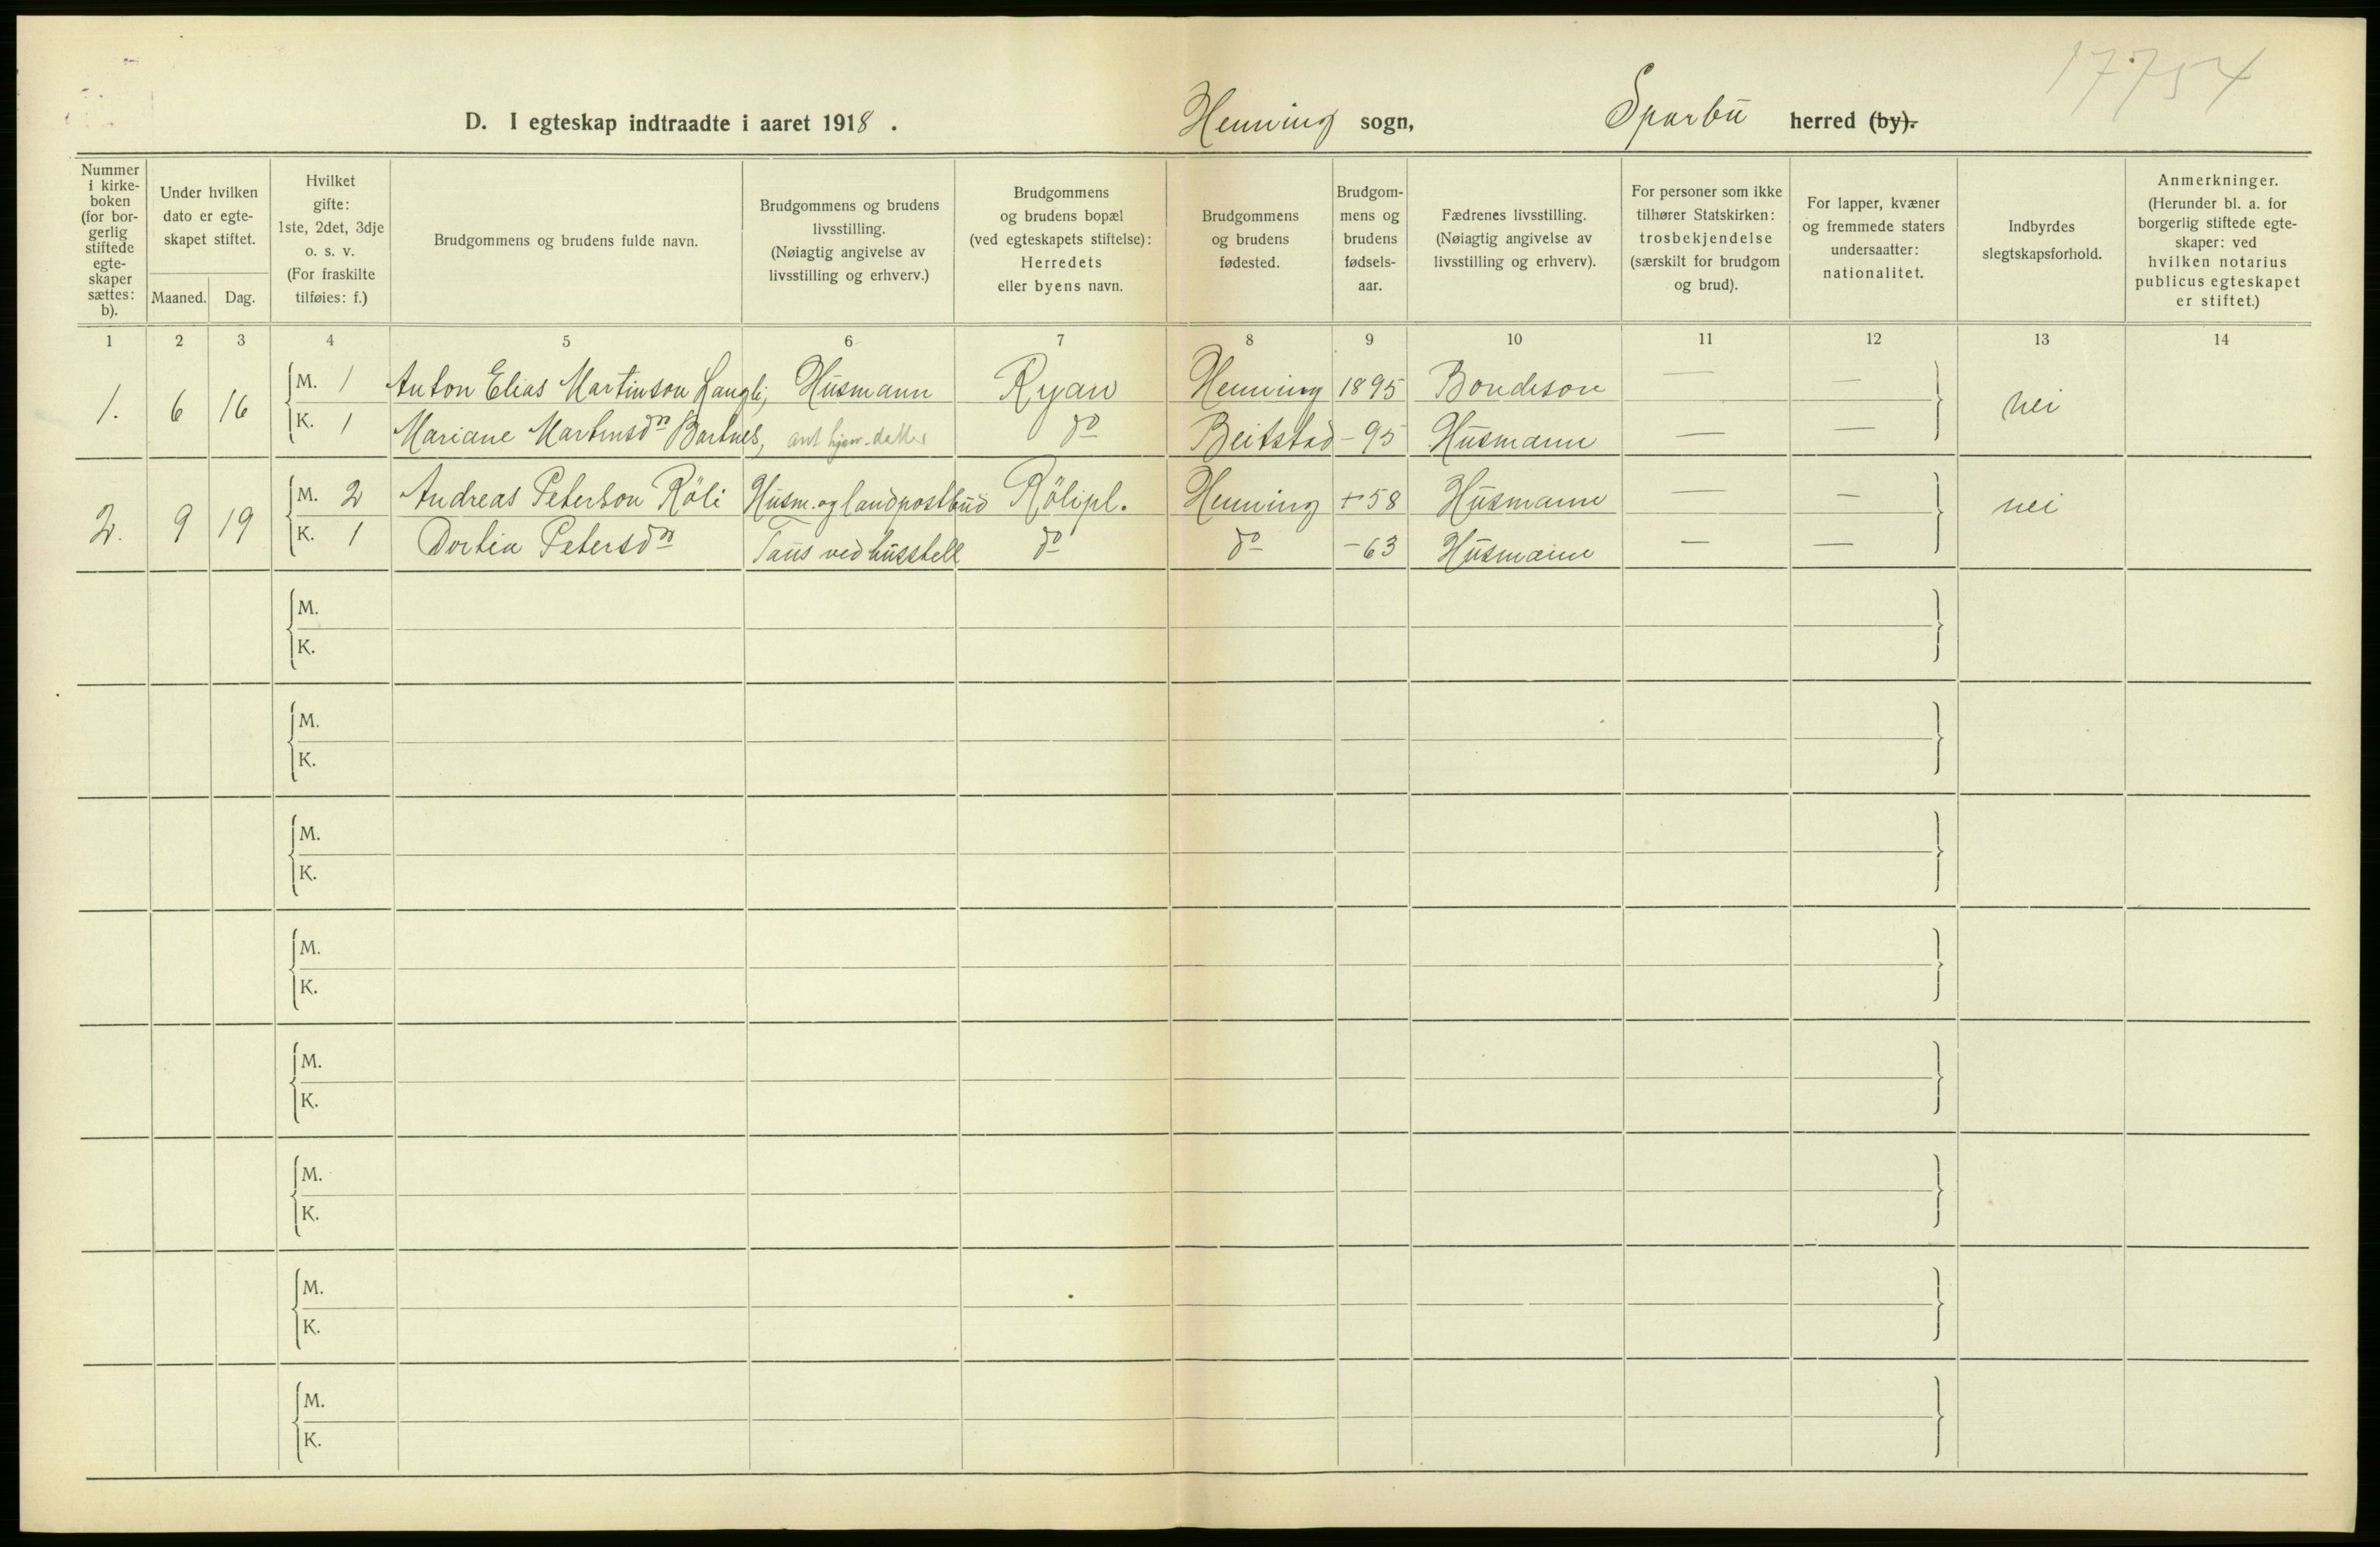 17754
D. I egteskap indtraadte i aaret 1918. Henning sogn, Sparbu herred (by).
Nummer i kirkeboken (for borgerlig stiftede egteskaper sættes: b).
Under hvilken dato er egteskapet stiftet.
Maaned. Dag.
Hvilket gifte: 1ste, 2det, 3dje o. s. v. (For fraskilte tilføies: f.)
Brudgommens og brudens fulde navn.
Brudgommens og brudens livsstilling. (Nøiagtig angivelse av livsstilling og erhverv.)
Brudgommens og brudens bopæl (ved egteskapets stiftelse): Herredets eller byens navn.
Brudgommens og brudens fødested.
Brudgommens og brudens fødselsaar.
Fædrenes livsstilling. (Nøiagtig angivelse av livsstilling og erhverv).
For personer som ikke tilhører Statskirken: trosbekjendelse (særskilt for brudgom og brud).
For lapper, kvæner og fremmede staters undersaatter: nationalitet.
Indbyrdes slegtskapsforhold.
Anmerkninger. (Herunder bl. a. for borgerlig stiftede egteskaper: ved hvilken notarius publicus egteskapet er stiftet.)
1 2 3 4 5 6 7 8 9 10 11 12 13 14
1. 6 16 M. 1 Anton Elias Martinson Langli, Husmann Ryan Henning 1895 Bondeson — — nei
K. 1 Mariane Martinsdn Bartnes, datter do Beitstad - 95 Husmann — —
2. 9 19 M. 2 Andreas Peterson Röli Husm. og landpostbud Rölipl. Henning 58 Husmann — — nei
K. 1 Dortea Petersdn Taus ved husstell do do - 63 Husmann — —
M.
K.
M.
K.
M.
K.
M.
K.
M.
K.
M.
K.
M.
K.
M.
K.